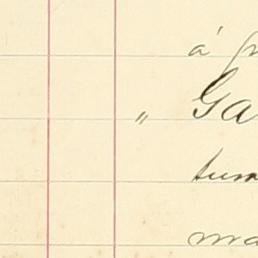 á
„ Ga
tum
ma